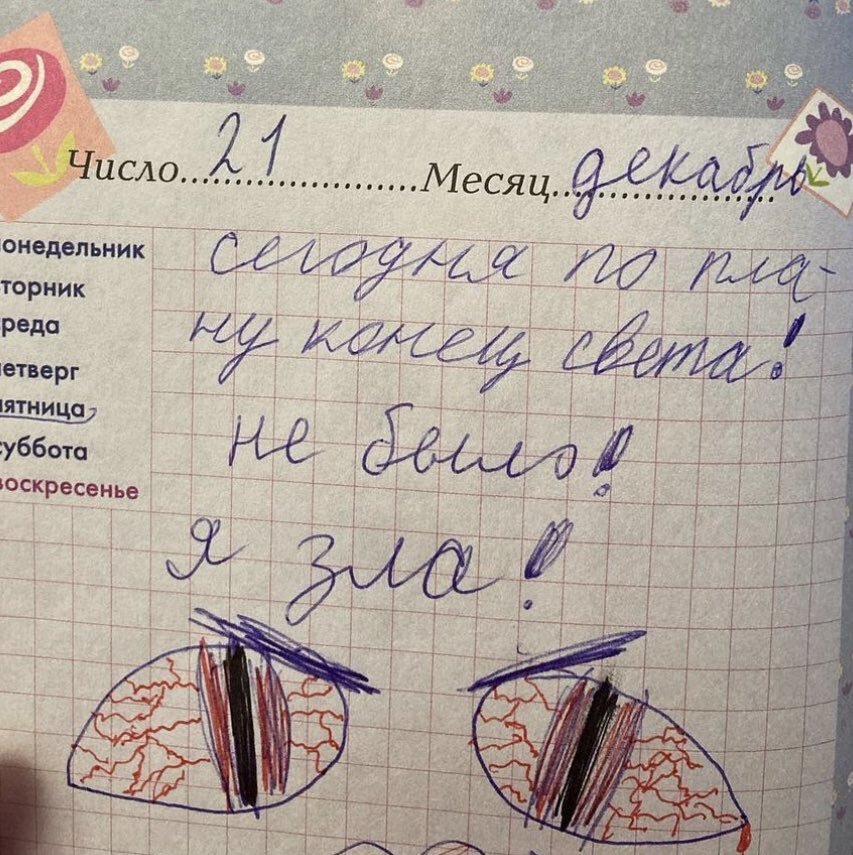 Число 21 Месяц декабрь
онедельник
торник
реда
етверг
ятница
суббота
воскресенье
сегодня по пла-
ну конец света!
не было!
я зла!